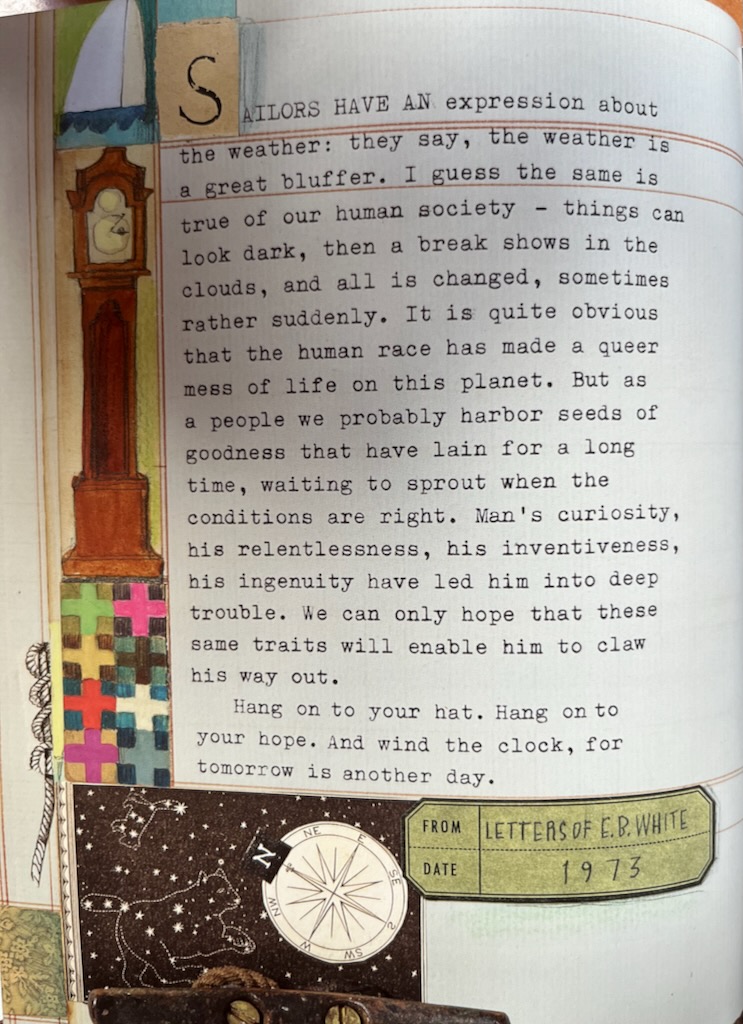 SAILORS HAVE AN expression about
the weather: they say, the weather is
a great bluffer. I guess the same is
true of our human society - things can
look dark, then a break shows in the
clouds, and all is changed, sometimes
rather suddenly. It is quite obvious
that the human race has made a queer
mess of life on this planet. But as
a people we probably harbor seeds of
goodness that have lain for a long
time, waiting to sprout when the
conditions are right. Man's curiosity,
his relentlessness, his inventiveness,
his ingenuity have led him into deep
trouble. We can only hope that these
same traits will enable him to claw
his way out.
Hang on to your hat. Hang on to
your hope. And wind the clock, for
tomorrow is another day.
FROM LETTERS OF E.B. WHITE
DATE 1973
N
NE
E
SE
S
SW
W
NW